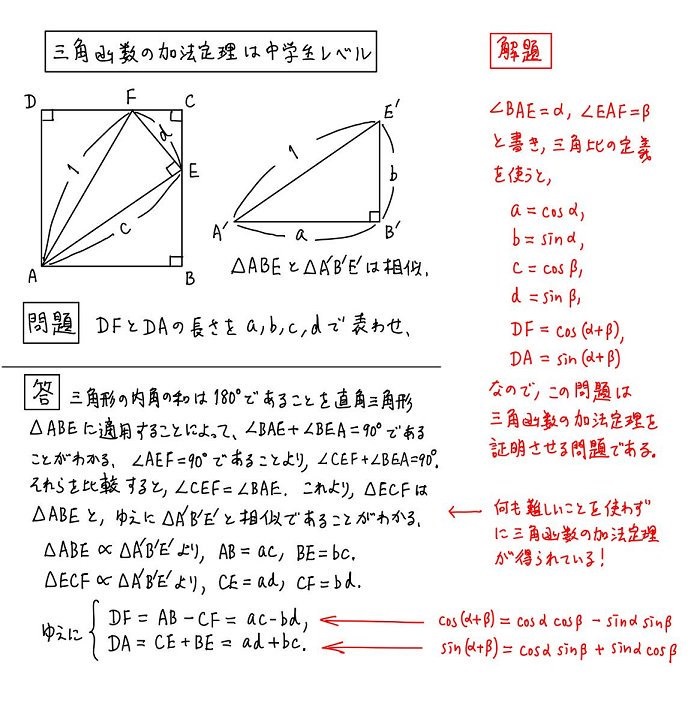 三角函数の加法定理は中学生レベル
D F C
1 d
E
c
A B
E′
1 b
A′ a B′
△ABEと△A′B′E′は相似.
問題 DFとDAの長さをa,b,c,dで表わせ.
答 三角形の内角の和は180°であることを直角三角形
△ABEに適用することによって、∠BAE+∠BEA=90°である
ことがわかる. ∠AEF=90°であることより, ∠CEF+∠BEA=90°.
それらを比較すると, ∠CEF=∠BAE. これより, △ECFは
△ABEと, ゆえに△A′B′E′と相似であることがわかる.
△ABE ∝ △A′B′E′より, AB=ac, BE=bc.
△ECF ∝ △A′B′E′より, CE=ad, CF=bd.
ゆえに { DF = AB − CF = ac−bd,
DA = CE + BE = ad+bc.
解題
∠BAE=α, ∠EAF=β
と書き, 三角比の定義
を使うと,
a = cosα,
b = sinα,
c = cosβ,
d = sinβ,
DF = cos(α+β),
DA = sin(α+β)
なので, この問題は
三角函数の加法定理を
証明させる問題である.
← 何も難しいことを使わず
に三角函数の加法定理
が得られている!
← cos(α+β) = cosα cosβ − sinα sinβ
← sin(α+β) = cosα sinβ + sinα cosβ